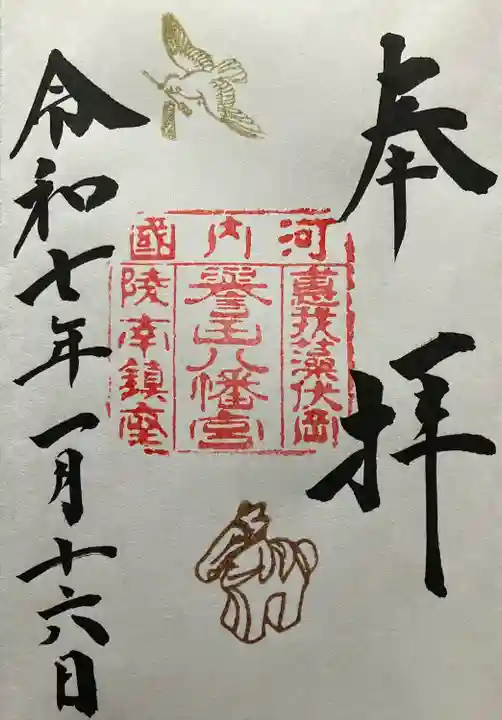 奉拝
河内國
惠我藻伏崗
誉田八幡宮
陵南鎮座
令和七年一月十六日